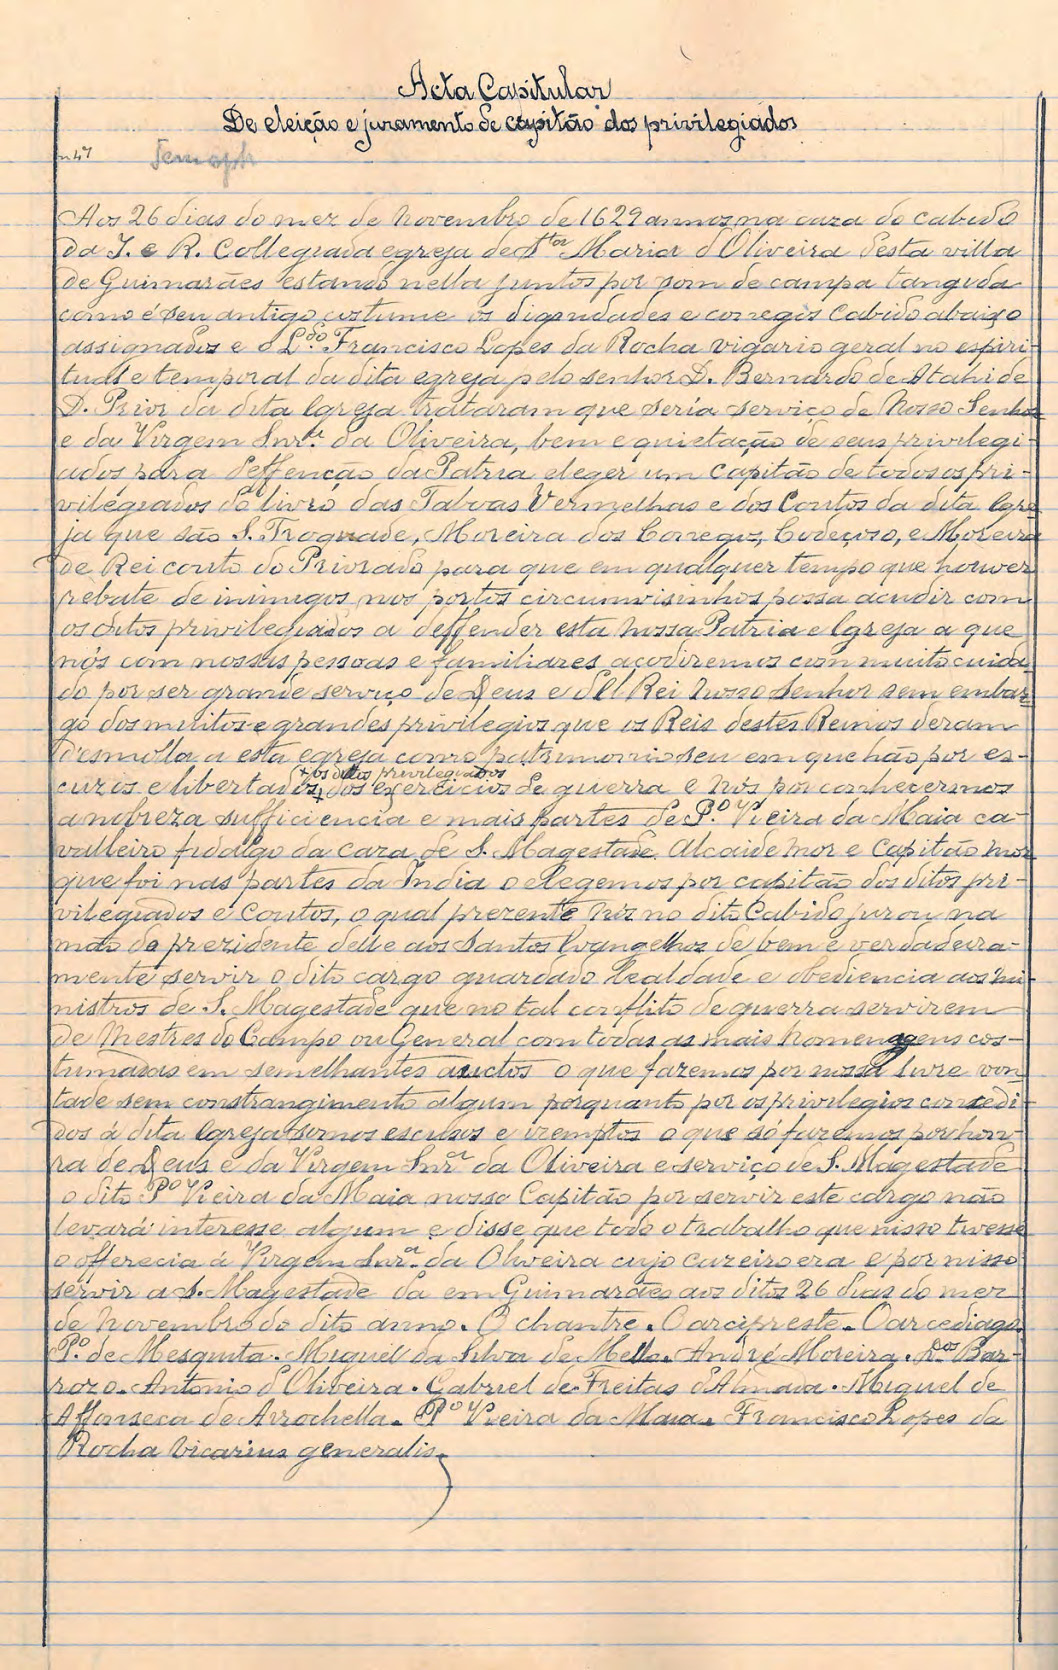 Acta Capitular
De eleição e juramento de capitão dos privilegiados
n 47
Aos 26 dias do mez de Novembro de 1629 annos na caza do cabido
da I. e R. Collegiada egreja de Sta Maria d'Oliveira desta villa
de Guimarães estando nella juntos por som de campa tangida
como é seu antigo costume os dignidades e conegos Cabido abaixo
assignados e o L.do Francisco Lopes da Rocha vigario geral no espiri-
tual e temporal da dita egreja pelo senhor D. Bernardo de Atahide
D. Prior da dita Igreja trataram que seria serviço de Nosso Senhor
e da Virgem Snr.ª da Oliveira, bem e quietação de seus privilegi-
ados para deffenção da Patria eleger um capitão de todos os pri-
vilegiados do livro das Taboas Vermelhas e dos Coutos da dita Igre
ja que são S. Trognade, Moreira dos Conegos, Codeçoso, e Moreira
de Rei couto do Priorado para que em qualquer tempo que houver
rebate de inimigos nos portos circumvisinhos possa acudir com
os ditos privilegiados a deffender esta nossa Patria e Igreja a que
nós com nossas pessoas e familiares acodiremos com muito cuida
do por ser grande serviço de Deus e d'El Rei Nosso Senhor sem embar-
go dos muitos e grandes privilegios que os Reis destes Reinos deram
d'esmolla a esta egreja como patrimonio seu em que hão por es-
+ os ditos privilegiados
cuzos e libertados + dos exercicios de guerra e nós por conhecermos
a nobreza sufficiencia e mais partes de P.º Vieira da Maia ca-
valleiro fidalgo da caza de S. Magestade, Alcaide mor e Capitão mor
que foi nas partes da India o elegemos por capitão dos ditos pri-
vilegiados e Coutos, o qual prezente nós no dito Cabido jurou na
mão do prezidente delle aos Santos Evangelhos de bem e verdadeira-
mente servir o dito cargo guardado lealdade e obediencia aos mi-
nistros de S. Magestade que no tal conflito de guerra servirem
de Mestres do Campo ou General com todas as mais homenagens cos-
tumadas em semelhantes auctos o que fazemos por nossa livre von
tade sem constrangimento algum porquanto por os privilegios concedi-
dos á dita Igreja somos escusos e izemptos o que só fazemos por hon-
ra de Deus e da Virgem Snrª da Oliveira e serviço de S. Magestade
o dito Pº Vieira da Maia nosso Capitão por servir este cargo não
levará interesse algum e disse que todo o trabalho que nisso tivesse
o offerecia á Virgem Snrª da Oliveira cujo cazeiro era e por nisso
servir a S. Magestade da em Guimarães aos ditos 26 dias do mez
de Novembro do dito anno. O chantre. O arcipreste. O arcediago.
P.º de Mesquita. Miguel da Silva de Mello. André Moreira. D.os Bar-
rozo. Antonio d'Oliveira. Gabriel de Freitas d'Almada. Miguel de
Affonseca de Arrochella. Pº Vieira da Maia. Francisco Lopes da
Rocha Vicarius generalis.